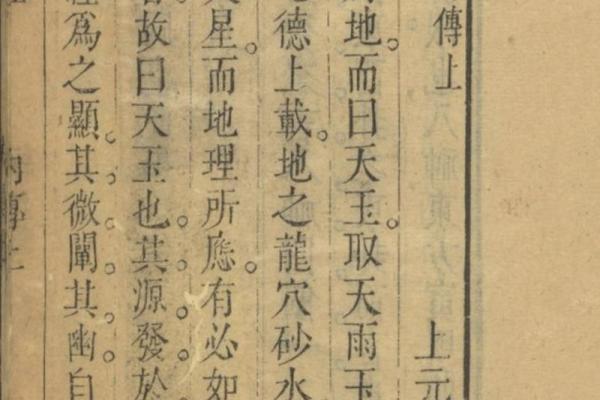 傳上　上元
地。而曰天玉。取天雨玉
德上載。地之龍穴砂水
星。而地理所應。有必如
故曰天玉也。其。源。發。於
爲之顯。其。微。闡。其。幽。自
傳上